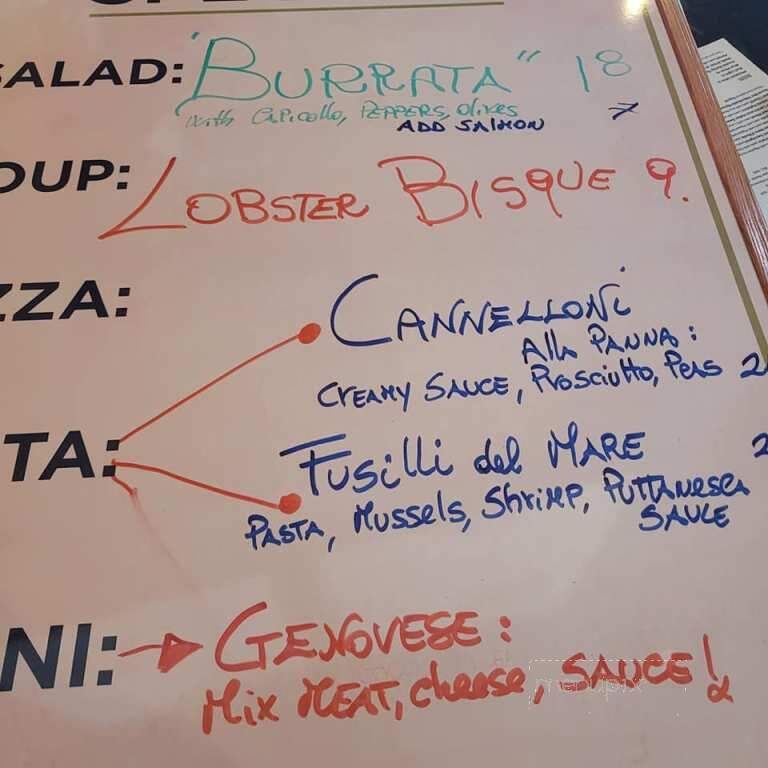 SALAD: "BURRATA" 18
with Capicollo, PEPPERS, Olives
ADD SALMON 7
OUP: LOBSTER BISQUE 9.
ZZA:
CANNELLONI
Alla PANNA:
CREAMY SAUCE, Prosciutto, Peas 2
TA:
Fusilli del MARE 2
PASTA, Mussels, Shrimp, PuTTANesca
SAUCE
NI: GENOVESE:
Mix MEAT, cheese, SAUCE!
menupix